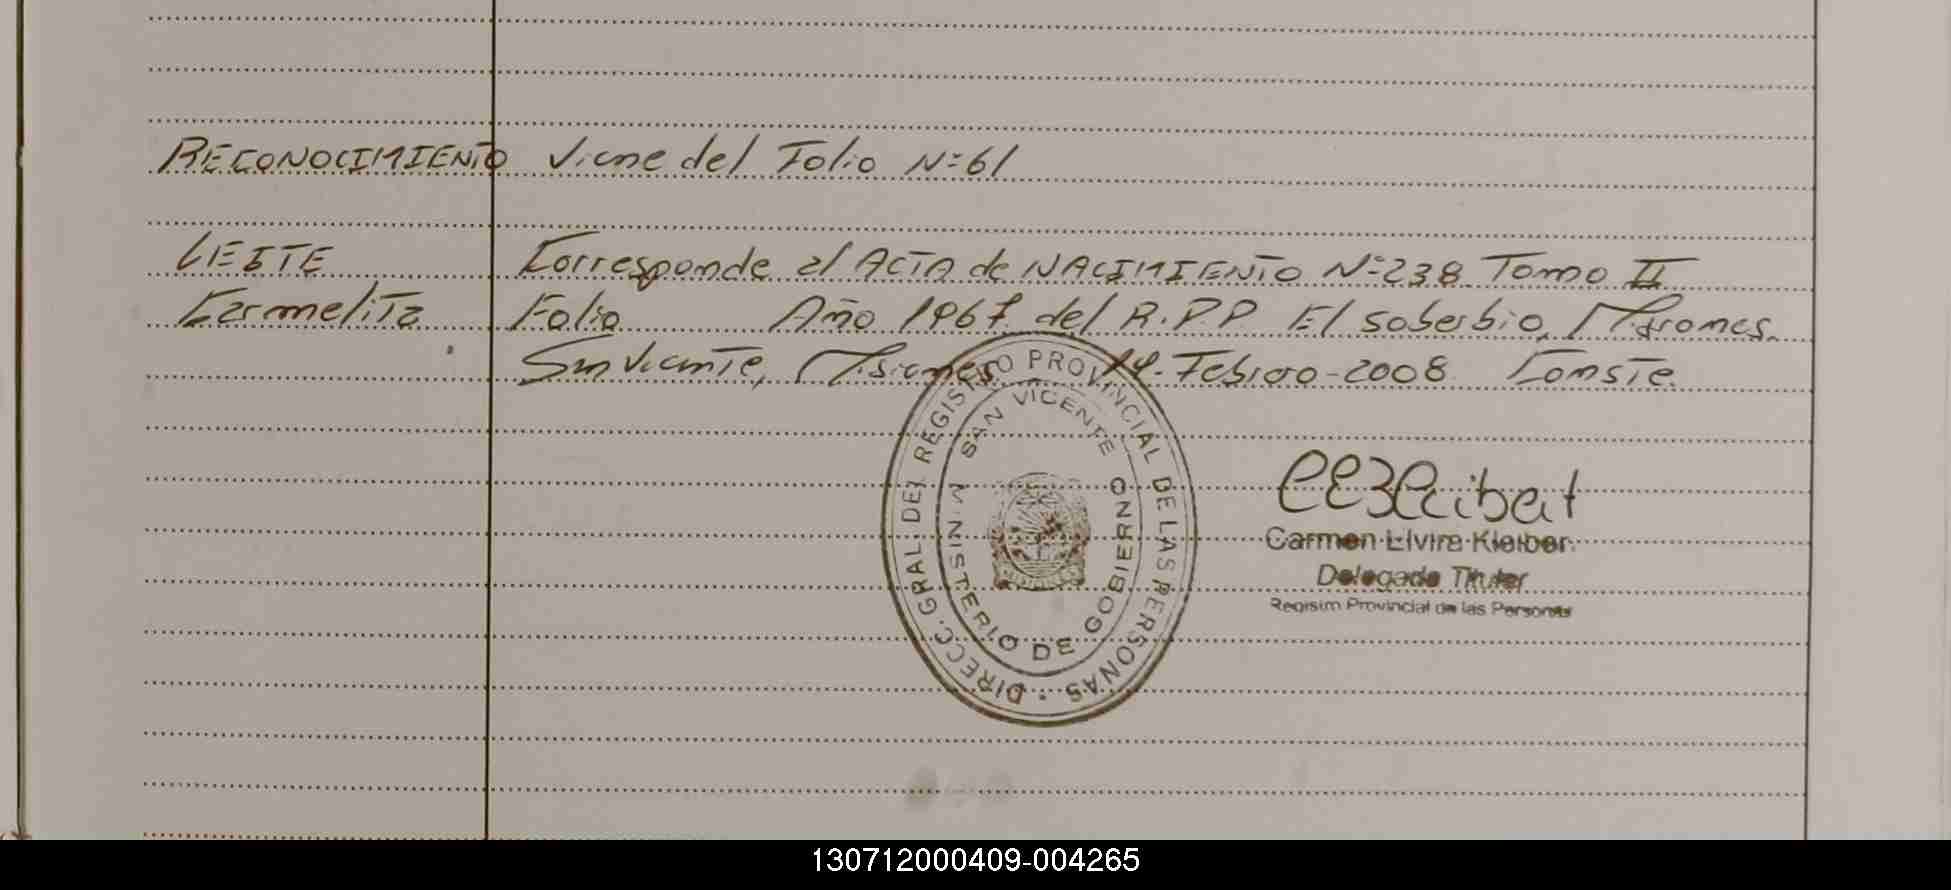 RECONOCIMIENTO Viene del Folio N=61
LEITE Corresponde al ACTA de NACIMIENTO N=238 Tomo II
Carmelita Folio Año 1967 del R.P.P. El soberbio, Misiones.
San Vicente, Misiones 14-Febrero-2008 Conste.
DIRECC. GRAL. DEL REGISTRO PROVINCIAL DE LAS PERSONAS
SAN VICENTE
MINISTERIO DE GOBIERNO
Carmen Elvira Kleiber
Delegada Titular
Registro Provincial de las Personas
130712000409-004265